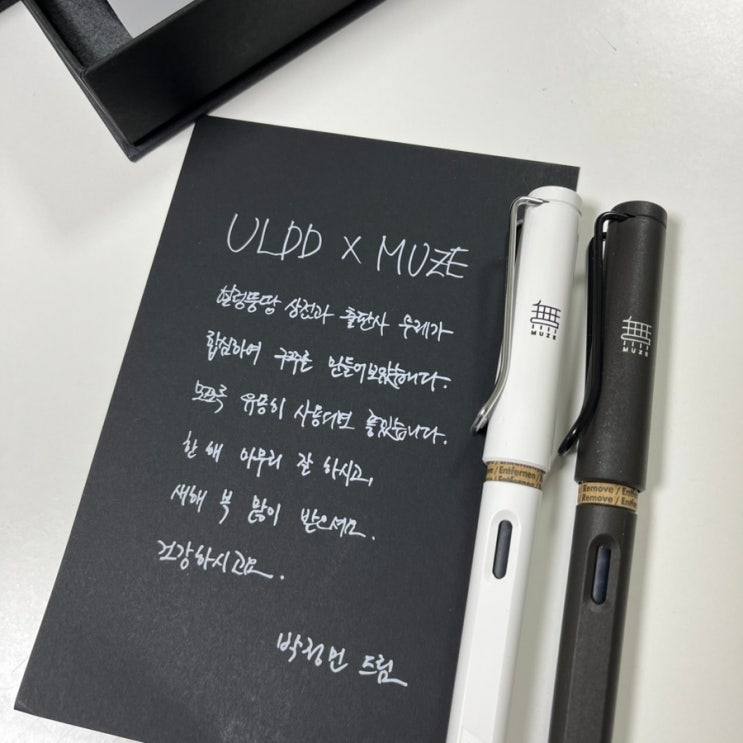 ULDD X MUZE
헐렁뚱땅 상점과 출판사 무제가
합심하여 굿즈를 만들어보았습니다.
모쪼록 유용히 사용되면 좋겠습니다.
한 해 마무리 잘 하시고,
새해 복 많이 받으세요.
건강하시고요.
박정민 드림
無
MUZE
無
MUZE
Entfernen /
Remove / Entf
Remove / Entfe